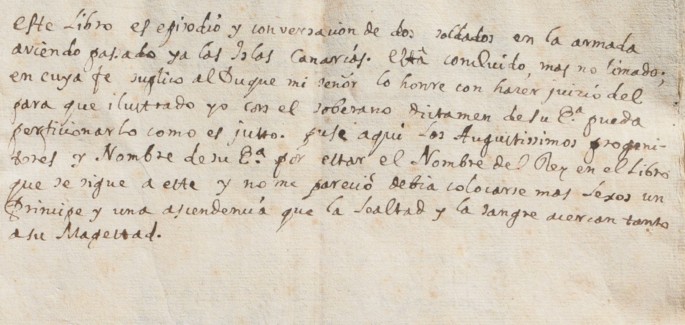 este Libro es episodio y conversacion de dos soldados en la armada
aviendo pasado ya las Islas Canarias. Està concluido, mas no limado;
en cuya fe suplico al Duque mi señor lo honre con hazer juizio del
para que ilustrado yo con el soberano dictamen de su E.ª pueda
perficionarlo como es justo. puse aqui los Augustissimos progeni-
tores y Nombre de su E.ª por estar el Nombre del Rey en el Libro
que se sigue a este y no me pareciò debia colocarse mas lexos un
Principe y una ascendencia que la lealtad y la sangre acercan tanto
a su Magestad.